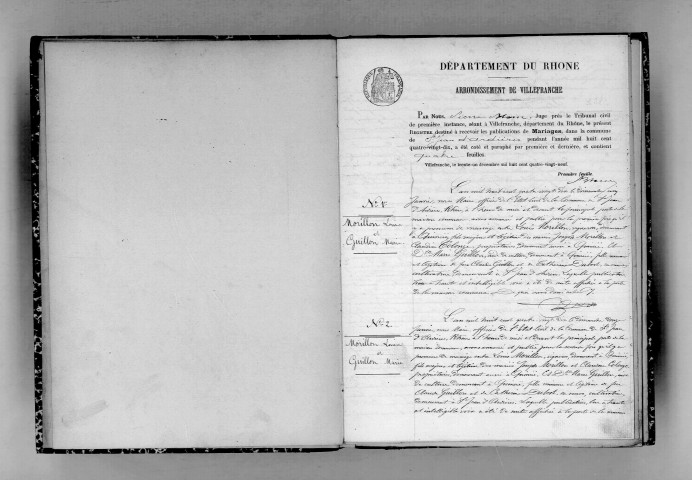 DÉPARTEMENT DU RHONE
ARRONDISSEMENT DE VILLEFRANCHE
PAR NOUS, Juge près le Tribunal civil
de première instance, séant à Villefranche, département du Rhône, le présent
REGISTRE destiné à recevoir les publications de Mariages, dans la commune
de St Jean d'Ardières pendant l'année mil huit cent
quatre-vingt-dix, a été coté et paraphé par première et dernière, et contient
quatre feuilles.
Villefranche, le trente-un décembre mil huit cent quatre-vingt-neuf.
Première feuille.
No 1
Morillon Louis
et
Guillon Marie
L'an mil huit cent quatre vingt dix le dimanche cinq
Janvier, nous Maire officier de l'Etat Civil de la Commune de St
Jean d'Ardières, Rhône, à l'heure de midi et devant la principale porte de la
maison commune avons annoncé et publié pour la première fois qu'il
y a promesse de mariage entre Louis Morillon, demeurant
fils majeur et légitime de Joseph Morillon et
Claudine propriétaires demeurant aussi à Et
Dlle Marie Guillon, demeurant à fille mineure
et légitime de feu Claude Guillon et de Catherine Dubost, sa veuve
cultivatrice demeurant à St Jean d'Ardières Laquelle publication
lue à haute et intelligible voix a été de suite affichée à la porte
de la maison commune
No 2
Morillon Louis
et
Guillon Marie
L'an mil huit cent quatre vingt dix le dimanche douze
Janvier, nous Maire officier de l'Etat Civil de la Commune de St Jean
d'Ardières, Rhône, à l'heure de midi et devant la principale porte de la
maison commune, avons annoncé et publié pour la seconde fois qu'il y a
promesse de mariage entre Louis Morillon, demeurant à
fils majeur et légitime de Joseph Morillon et Claudine
propriétaires demeurant aussi à Et Dlle Marie Guillon,
demeurant à fille mineure et légitime de feu
Claude Guillon et de Catherine Dubost, sa veuve, cultivatrice
demeurant à St Jean d'Ardières Laquelle publication lue à haute
et intelligible voix a été de suite affichée à la porte de la maison